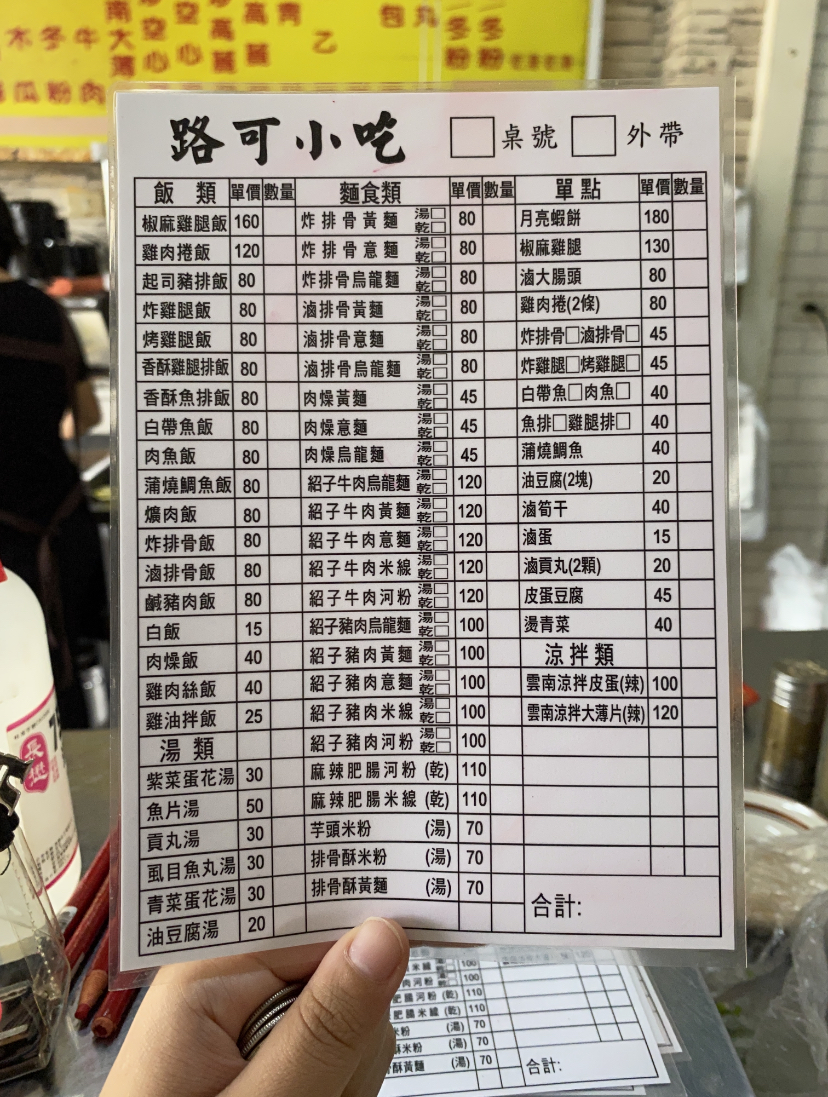 路可小吃 □桌號 □外帶
飯 類 單價 數量
椒麻雞腿飯 160
雞肉捲飯 120
起司豬排飯 80
炸雞腿飯 80
烤雞腿飯 80
香酥雞腿排飯 80
香酥魚排飯 80
白帶魚飯 80
肉魚飯 80
蒲燒鯛魚飯 80
爌肉飯 80
炸排骨飯 80
滷排骨飯 80
鹹豬肉飯 80
白飯 15
肉燥飯 40
雞肉絲飯 40
雞油拌飯 25
湯 類
紫菜蛋花湯 30
魚片湯 50
貢丸湯 30
虱目魚丸湯 30
青菜蛋花湯 30
油豆腐湯 20
麵食類 單價 數量
炸排骨黃麵 湯□乾□ 80
炸排骨意麵 湯□乾□ 80
炸排骨烏龍麵 湯□乾□ 80
滷排骨黃麵 湯□乾□ 80
滷排骨意麵 湯□乾□ 80
滷排骨烏龍麵 湯□乾□ 80
肉燥黃麵 湯□乾□ 45
肉燥意麵 湯□乾□ 45
肉燥烏龍麵 湯□乾□ 45
紹子牛肉烏龍麵 湯□乾□ 120
紹子牛肉黃麵 湯□乾□ 120
紹子牛肉意麵 湯□乾□ 120
紹子牛肉米線 湯□乾□ 120
紹子牛肉河粉 湯□乾□ 120
紹子豬肉烏龍麵 湯□乾□ 100
紹子豬肉黃麵 湯□乾□ 100
紹子豬肉意麵 湯□乾□ 100
紹子豬肉米線 湯□乾□ 100
紹子豬肉河粉 湯□乾□ 100
麻辣肥腸河粉 (乾) 110
麻辣肥腸米線 (乾) 110
芋頭米粉 (湯) 70
排骨酥米粉 (湯) 70
排骨酥黃麵 (湯) 70
單點 單價 數量
月亮蝦餅 180
椒麻雞腿 130
滷大腸頭 80
雞肉捲(2條) 80
炸排骨□滷排骨□ 45
炸雞腿□烤雞腿□ 45
白帶魚□肉魚□ 40
魚排□雞腿排□ 40
蒲燒鯛魚 40
油豆腐(2塊) 20
滷筍干 40
滷蛋 15
滷貢丸(2顆) 20
皮蛋豆腐 45
燙青菜 40
涼拌類
雲南涼拌皮蛋(辣) 100
雲南涼拌大薄片(辣) 120
合計: